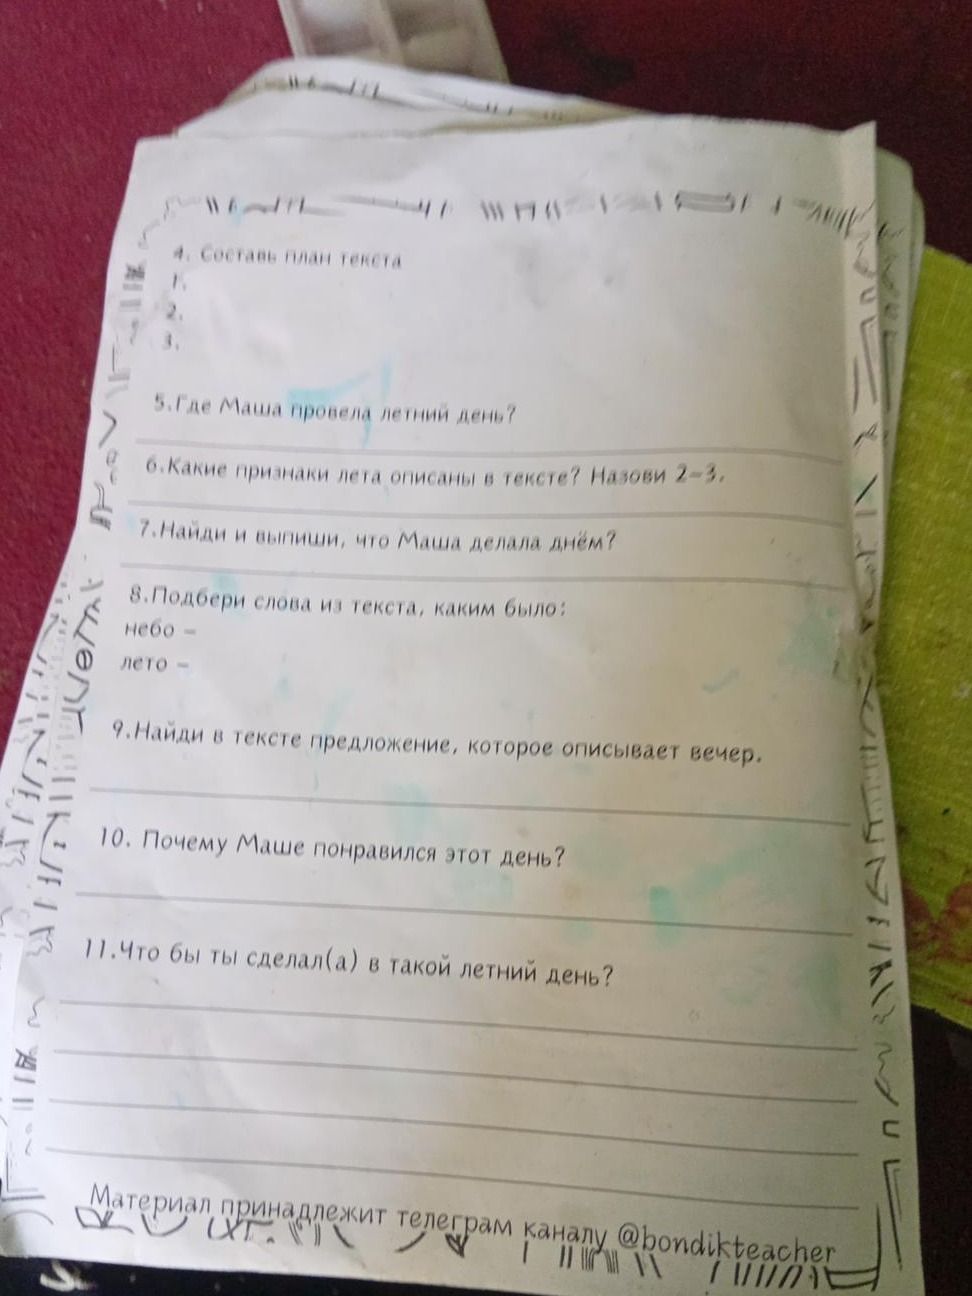 4. Составь план текста
1.
2.
3.
5.Где Маша провела летний день?
6.Какие признаки лета описаны в тексте? Назови 2-3.
7.Найди и выпиши, что Маша делала днём?
8.Подбери слова из текста, каким было:
небо –
лето –
9.Найди в тексте предложение, которое описывает вечер.
10. Почему Маше понравился этот день?
11.Что бы ты сделал(а) в такой летний день?
Материал принадлежит телеграм каналу @bondikteacher